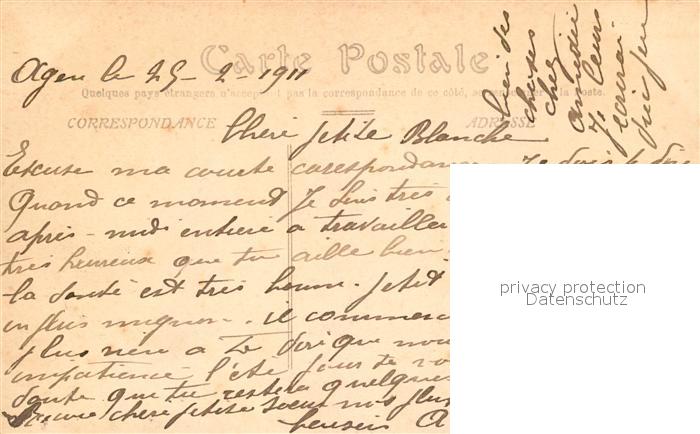 Carte Postale
Agen le 25-2-1911
Quelques pays étrangers n'acceptent pas la correspondance de ce côté, se renseigner à la poste.
CORRESPONDANCE
ADRESSE
Cheré petite Blanche
Excuse ma courte corespondance Je dois te
Quand ce moment Je suis très
après-midi entière a travailler
très heureux que tu aille bien
la santé est très bonne. petit
plus mignon. il commence
plus rien a Te dire que nous
impatience l'été jour de
doute que tu restera quelques
cheré petite soeur nos plus
baisers A
bien des
choses
chez
leurs
écrirai
privacy protection
Datenschutz